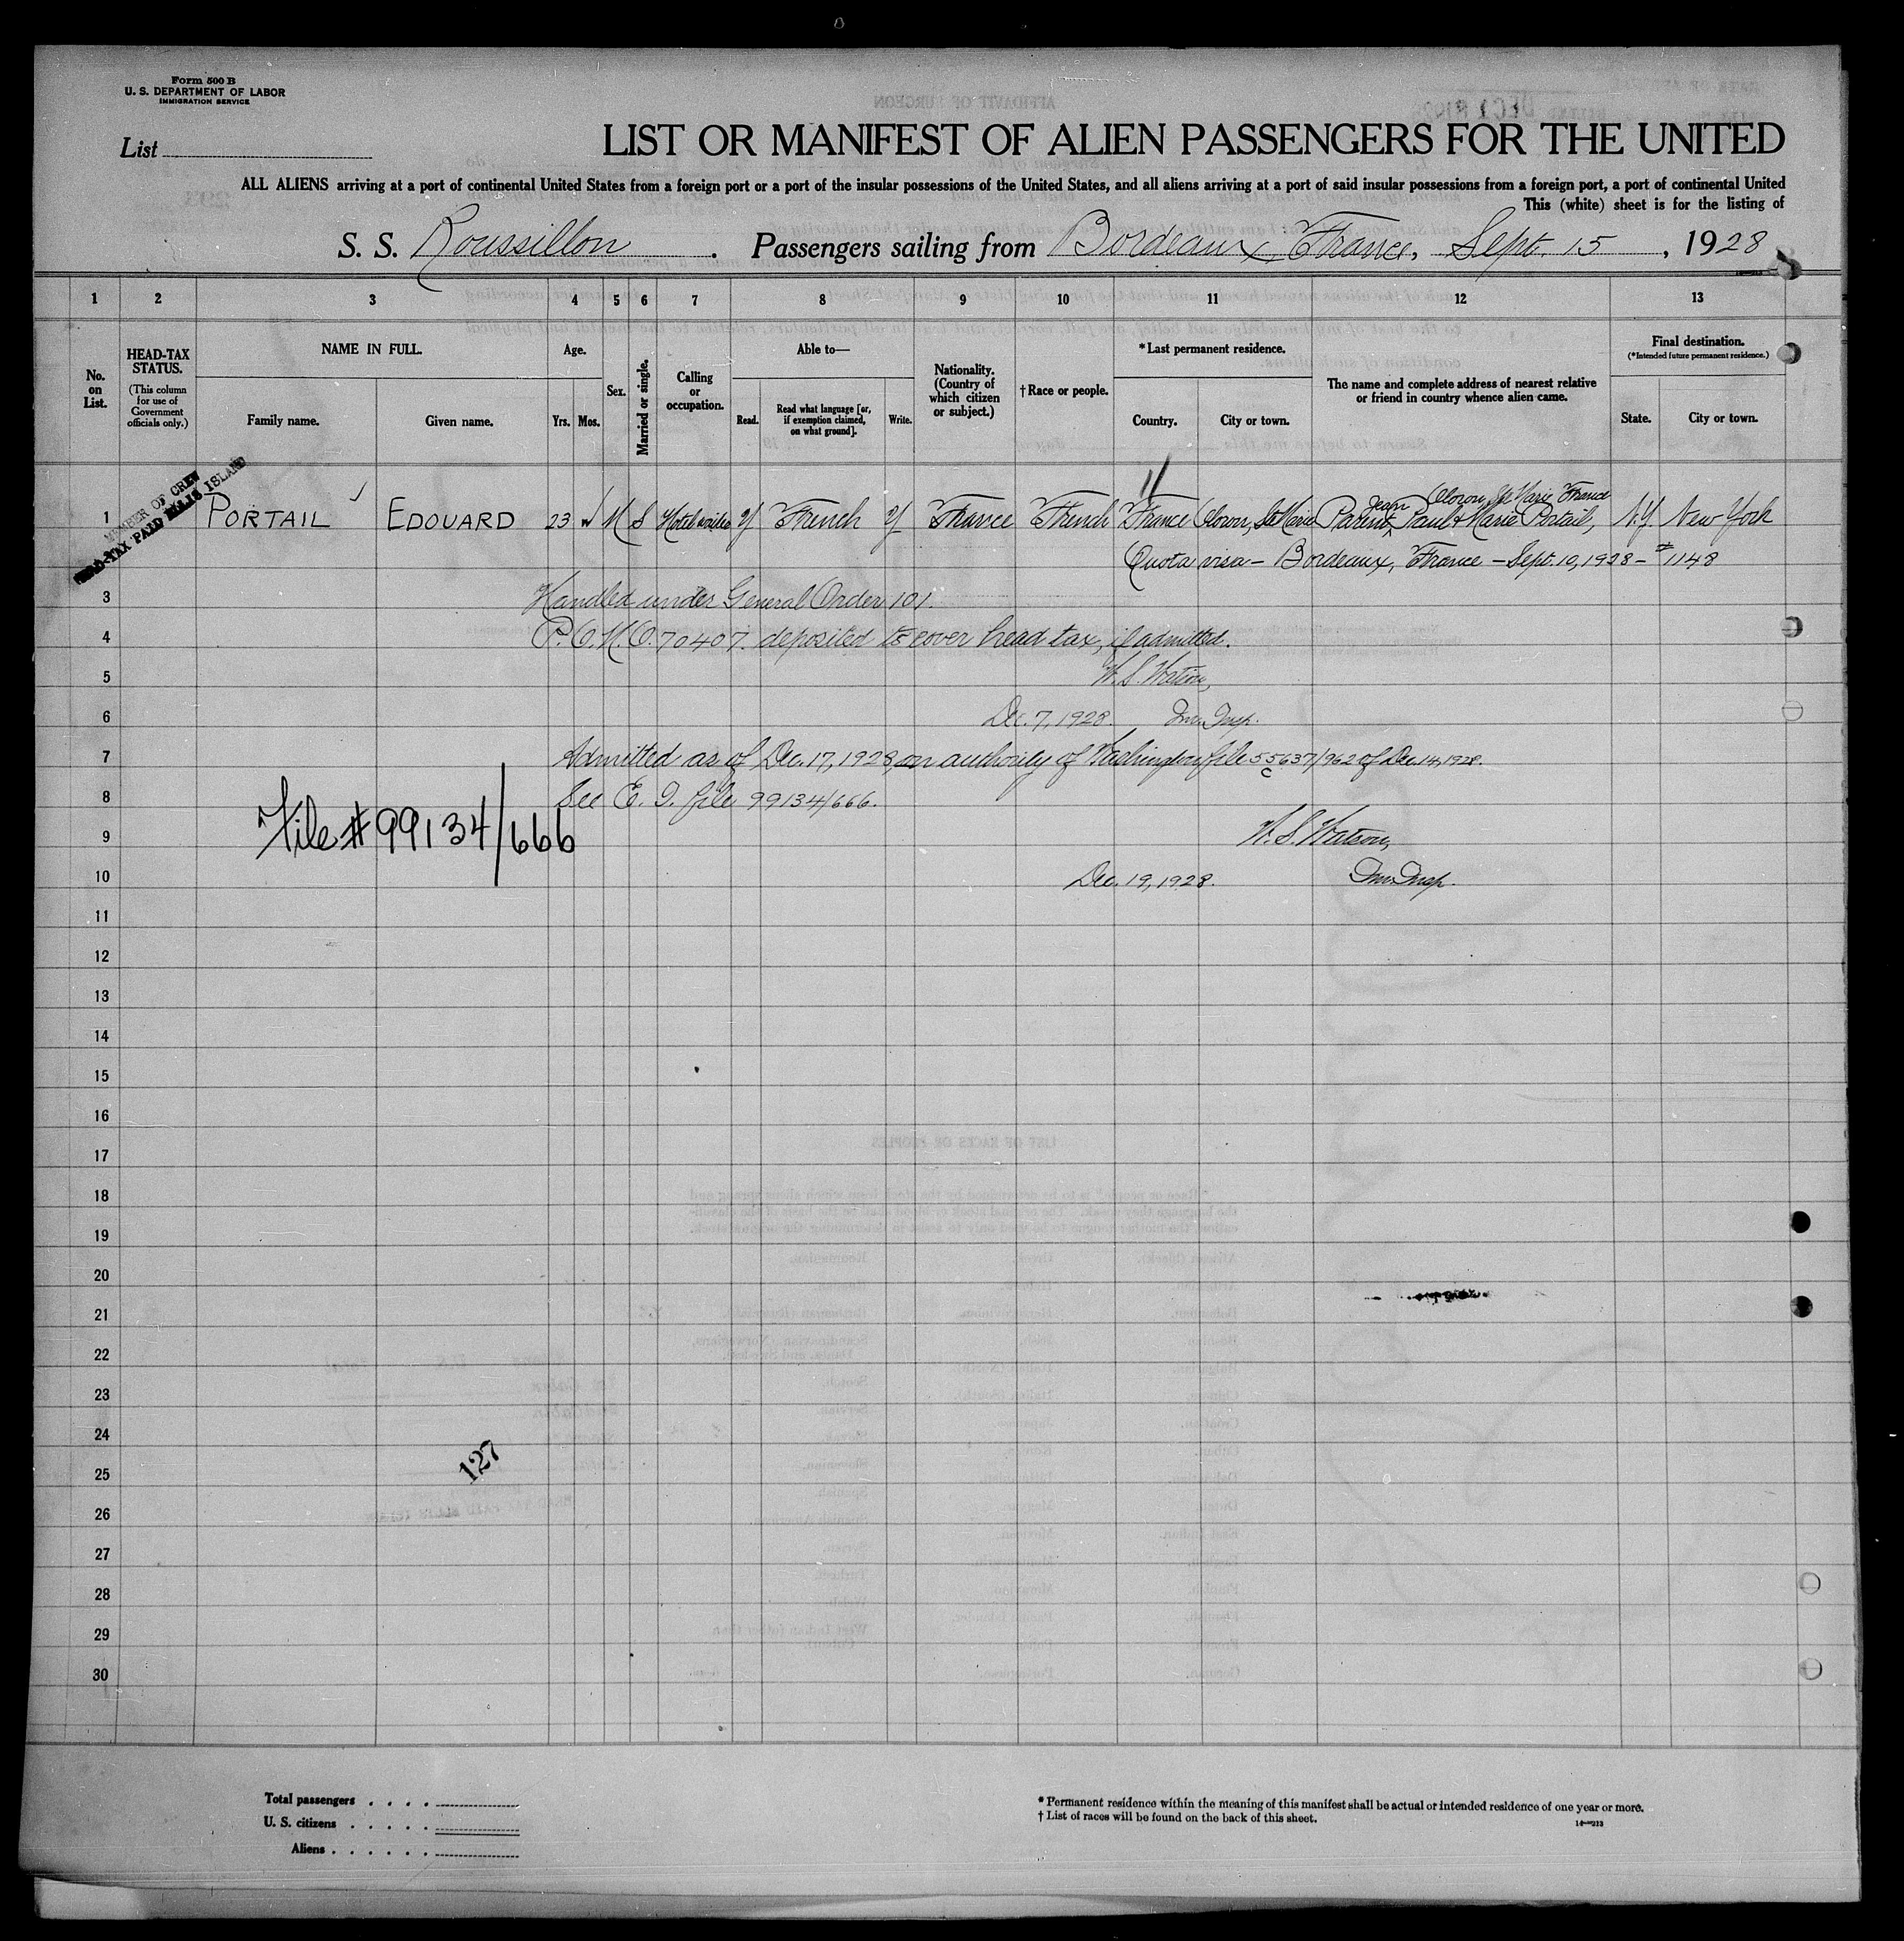 Form 500 B
U. S. DEPARTMENT OF LABOR
IMMIGRATION SERVICE
List
LIST OR MANIFEST OF ALIEN PASSENGERS FOR THE UNITED
ALL ALIENS arriving at a port of continental United States from a foreign port or a port of the insular possessions of the United States, and all aliens arriving at a port of said insular possessions from a foreign port, a port of continental United
This (white) sheet is for the listing of
S. S. Roussillon. Passengers sailing from Bordeaux, France, Sept. 15, 1928
1 2 3 4 5 6 7 8 9 10 11 12 13
No. on List.
HEAD-TAX STATUS.
(This column for use of Government officials only.)
NAME IN FULL.
Family name. Given name.
Age.
Yrs. Mos.
Sex.
Married or single.
Calling or occupation.
Able to—
Read. Read what language [or, if exemption claimed, on what ground]. Write.
Nationality. (Country of which citizen or subject.)
† Race or people.
*Last permanent residence.
Country. City or town.
The name and complete address of nearest relative or friend in country whence alien came.
Final destination.
(*Intended future permanent residence.)
State. City or town.
MEMBER OF CREW
HEAD-TAX PAID ELLIS ISLAND
11
Jean Oloron, Ste Marie France
1 PORTAIL EDOUARD 23 M S Y French Y France French France Oloron, Ste Marie Parents, Paul & Marie Portail, N.Y New York
Quota visa - Bordeaux, France - Sept. 10, 1928 - #1148
3 Handled under General Order 101.
4 P.O.M.O. 70407. deposited to cover head tax, if admitted.
5 W. S. Watson,
6 Dec. 7, 1928. Im. Insp.
7 Admitted as of Dec. 17, 1928, on authority of Washington file 55637/962 of Dec. 14, 1928.
8 See E. I. file 99134/666.
File # 99134/666
9 W. S. Watson,
10 Dec. 19, 1928. Im. Insp.
11
12
13
14
15
16
17
18
19
20
21
22
23
24
127
25
26
27
28
29
30
Total passengers
U. S. citizens
Aliens
* Permanent residence within the meaning of this manifest shall be actual or intended residence of one year or more.
† List of races will be found on the back of this sheet.
14—213